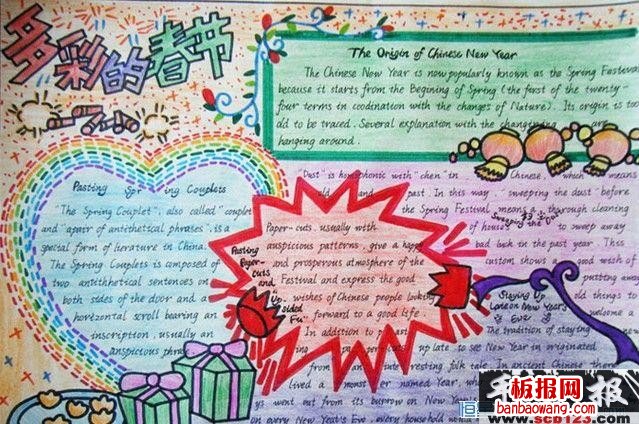 多彩的春节
The Origin of Chinese New Year
The Chinese New Year is now popularly known as the Spring Festival
because it starts from the Begining of Spring (the first of the twenty-
four terms in coodination with the changes of Nature). Its origin is too
old to be traced. Several explanation with the changinging are
hanging around.
Pasting Spring Couplets
"The Spring Couplet", also called "couplet
and "apair of antithetical phrases", is a
special form of lierature in China.
The Spring Couplets is composed of
two antithetical sentences on
both sides of the door and a
horizontal scroll bearing an
inscription, usually an
auspicious phrase
Pasting
Paper-
cuts
and
Up
sided
Fu"
Paper-cuts, usually with
auspicious patterns, give a happy
and prosperous atmosphere of the
Festival and express the good
wishes of Chinese people looking
forward to a good life.
In addition to
Sweeping the Dust
"Dust" is homophonic with "chen" in Chinese, which means
old and past. In this way, "sweeping the dust" before
the Spring Festival means a thorough cleaning
of houses to sweep away
bad luck in the past year. This
custom shows a good wish of
putting away
old things to
welcome a
Staying Up
Late on New Year's
Eve
The tradition of staying
up late to see New Year in originated
from an interesting folk tale. In ancient China there
lived a monster named Year, who
went out from its burrow on New Year's
on every New Year's Eve, every household would
板报网
banbaowang.com
www.scb123.com